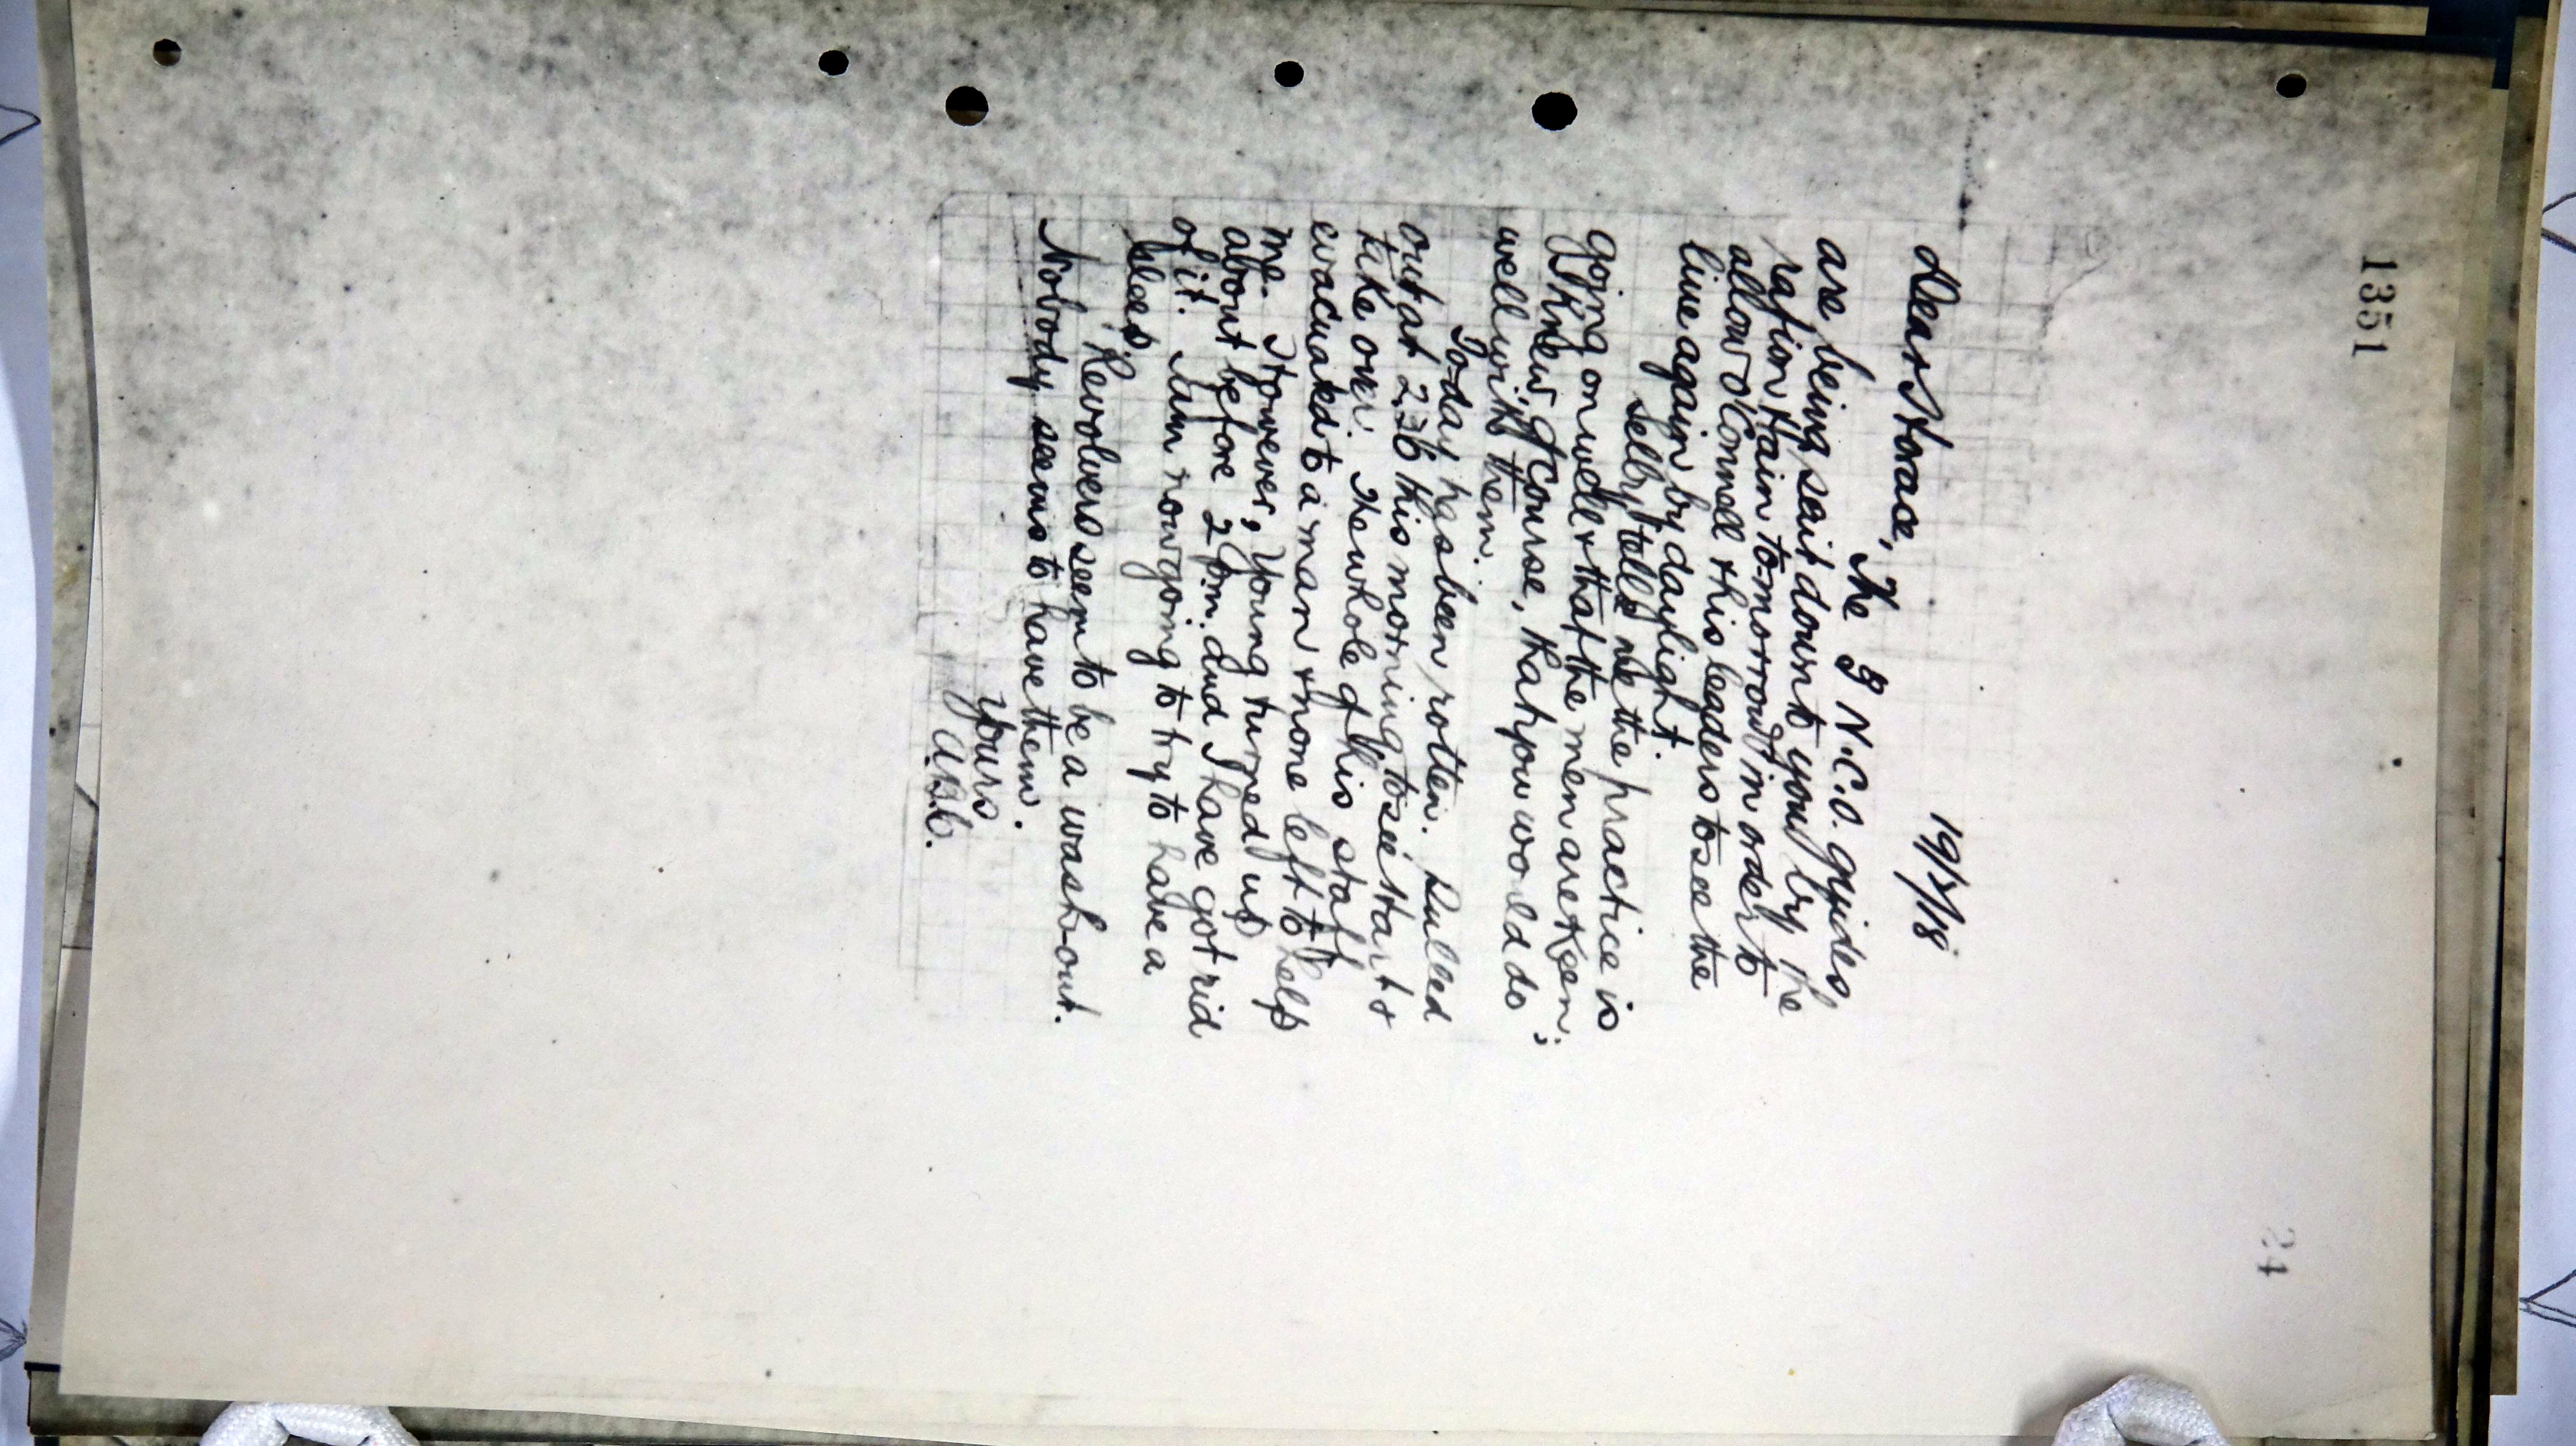 1351
24
19/7/18
Dear Horace,
The 8 N.C.O. guides
are being sent down to you by the
ration train to-morrow in order to
allow O'Connell & his leaders to see the
line again by daylight.
Selby tells me the practice is
going on well & that the men are keen;
I knew, of course, that you would do
well with them.
To-day has been rotten. Pulled
out at 2.30 this morning to see start &
take over. The whole of his staff
evacuated to a man & none left to help
me. However, Young turned up
about before 2 p.m. and I have got rid
of it. I am now going to try to have a
sleep.
Revolvers seem to be a wash-out.
Nobody seems to have them.
Yours